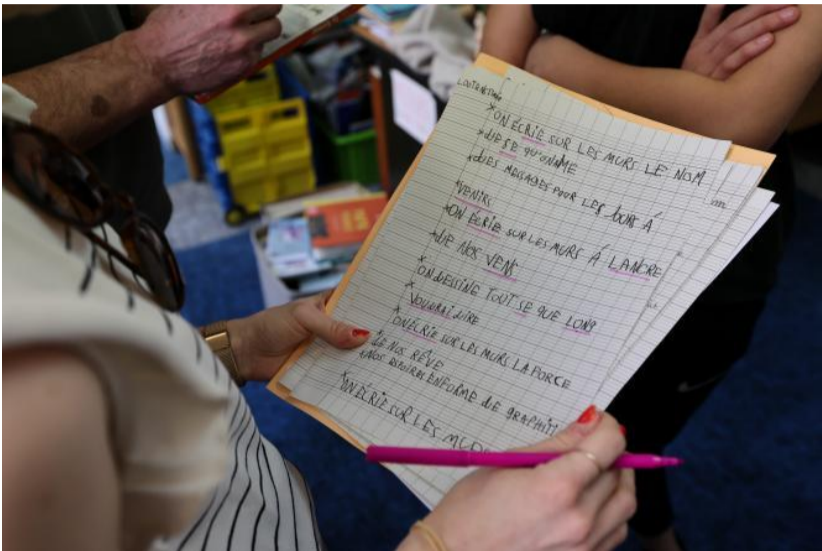 *ON ÉCRIE SUR LES MURS LE NOM
*DE SE QU'ONAIME
*DES MESSAGES POUR LES JOURS À
VENIRS
*ON ÉCRIE SUR LES MURS À LANCRE
*DE NOS VENS
*ON DESSINE TOUT SE QUE LONG
*VOUDRAI DIRE
*ON ÉCRIE SUR LES MURS LA FORCE
*DE NOS RÊVE
*NOS ESPOIRES ENFORME DE GRAPHITI
*ON ÉCRIE SUR LES MURS